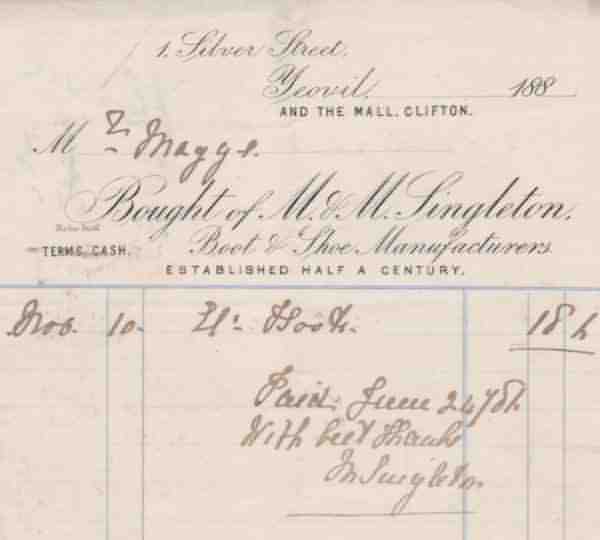 1. Silver Street.
Yeovil, 188
AND THE MALL, CLIFTON.
Mr Maggs.
Bought of M. & M. Singleton,
TERMS, CASH. Boot & Shoe Manufacturers
ESTABLISHED HALF A CENTURY.
Nov. 10. Boots. 18
Paid June 24
With best thanks
M Singleton